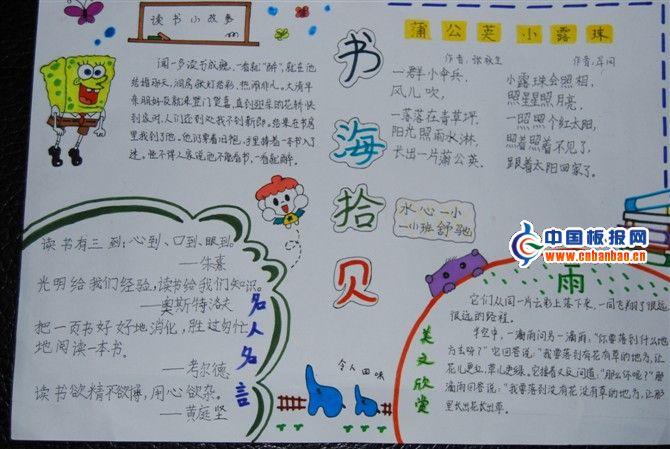 读书小故事
闻一多读书成瘾，一看就"醉"，就在他
结婚那天，洞房张灯结彩，热闹非凡。大清早
亲朋好友都来登门贺喜，直到迎亲的花轿快
到家时，人们还到处找不到新郎。结果在书房
里找到了他。他仍穿着旧袍，手里捧着一本书入了
迷。怪不得人家说他不能看书，一看就醉。
书海拾贝
蒲公英
作者：张秋生
一群小伞兵，
风儿吹，
一落落在青草坪，
阳光照雨水淋，
长出一片蒲公英。
小露珠
小露珠会照相，
照星星照月亮，
一照照个红太阳，
照着照着不见了，
跟着太阳回家了。
水心一小
一小班舒驰
读书有三到：心到、口到、眼到。
——朱熹
光明给我们经验，读书给我们知识。
——奥斯特洛夫
把一页书好好地消化，胜过匆忙
地阅读一本书。
——考尔德
读书欲精不欲博，用心欲杂。
——黄庭坚
名人名言
令人回味
中国板报网
www.cnbanbao.cn
雨
它们从同一片云彩上落下来，一同飞翔了很远
很远的路程。
半空中，一滴雨问另一滴雨，"你要落到什么地
方去呀？"它回答说："我要落到有花有草的地方，让
花儿更红，草儿更绿。它接着又反问道，"那么你呢？"那
滴雨回答说："我要落到没有花没有草的地方，让那
里长出花长出草。
美文欣赏